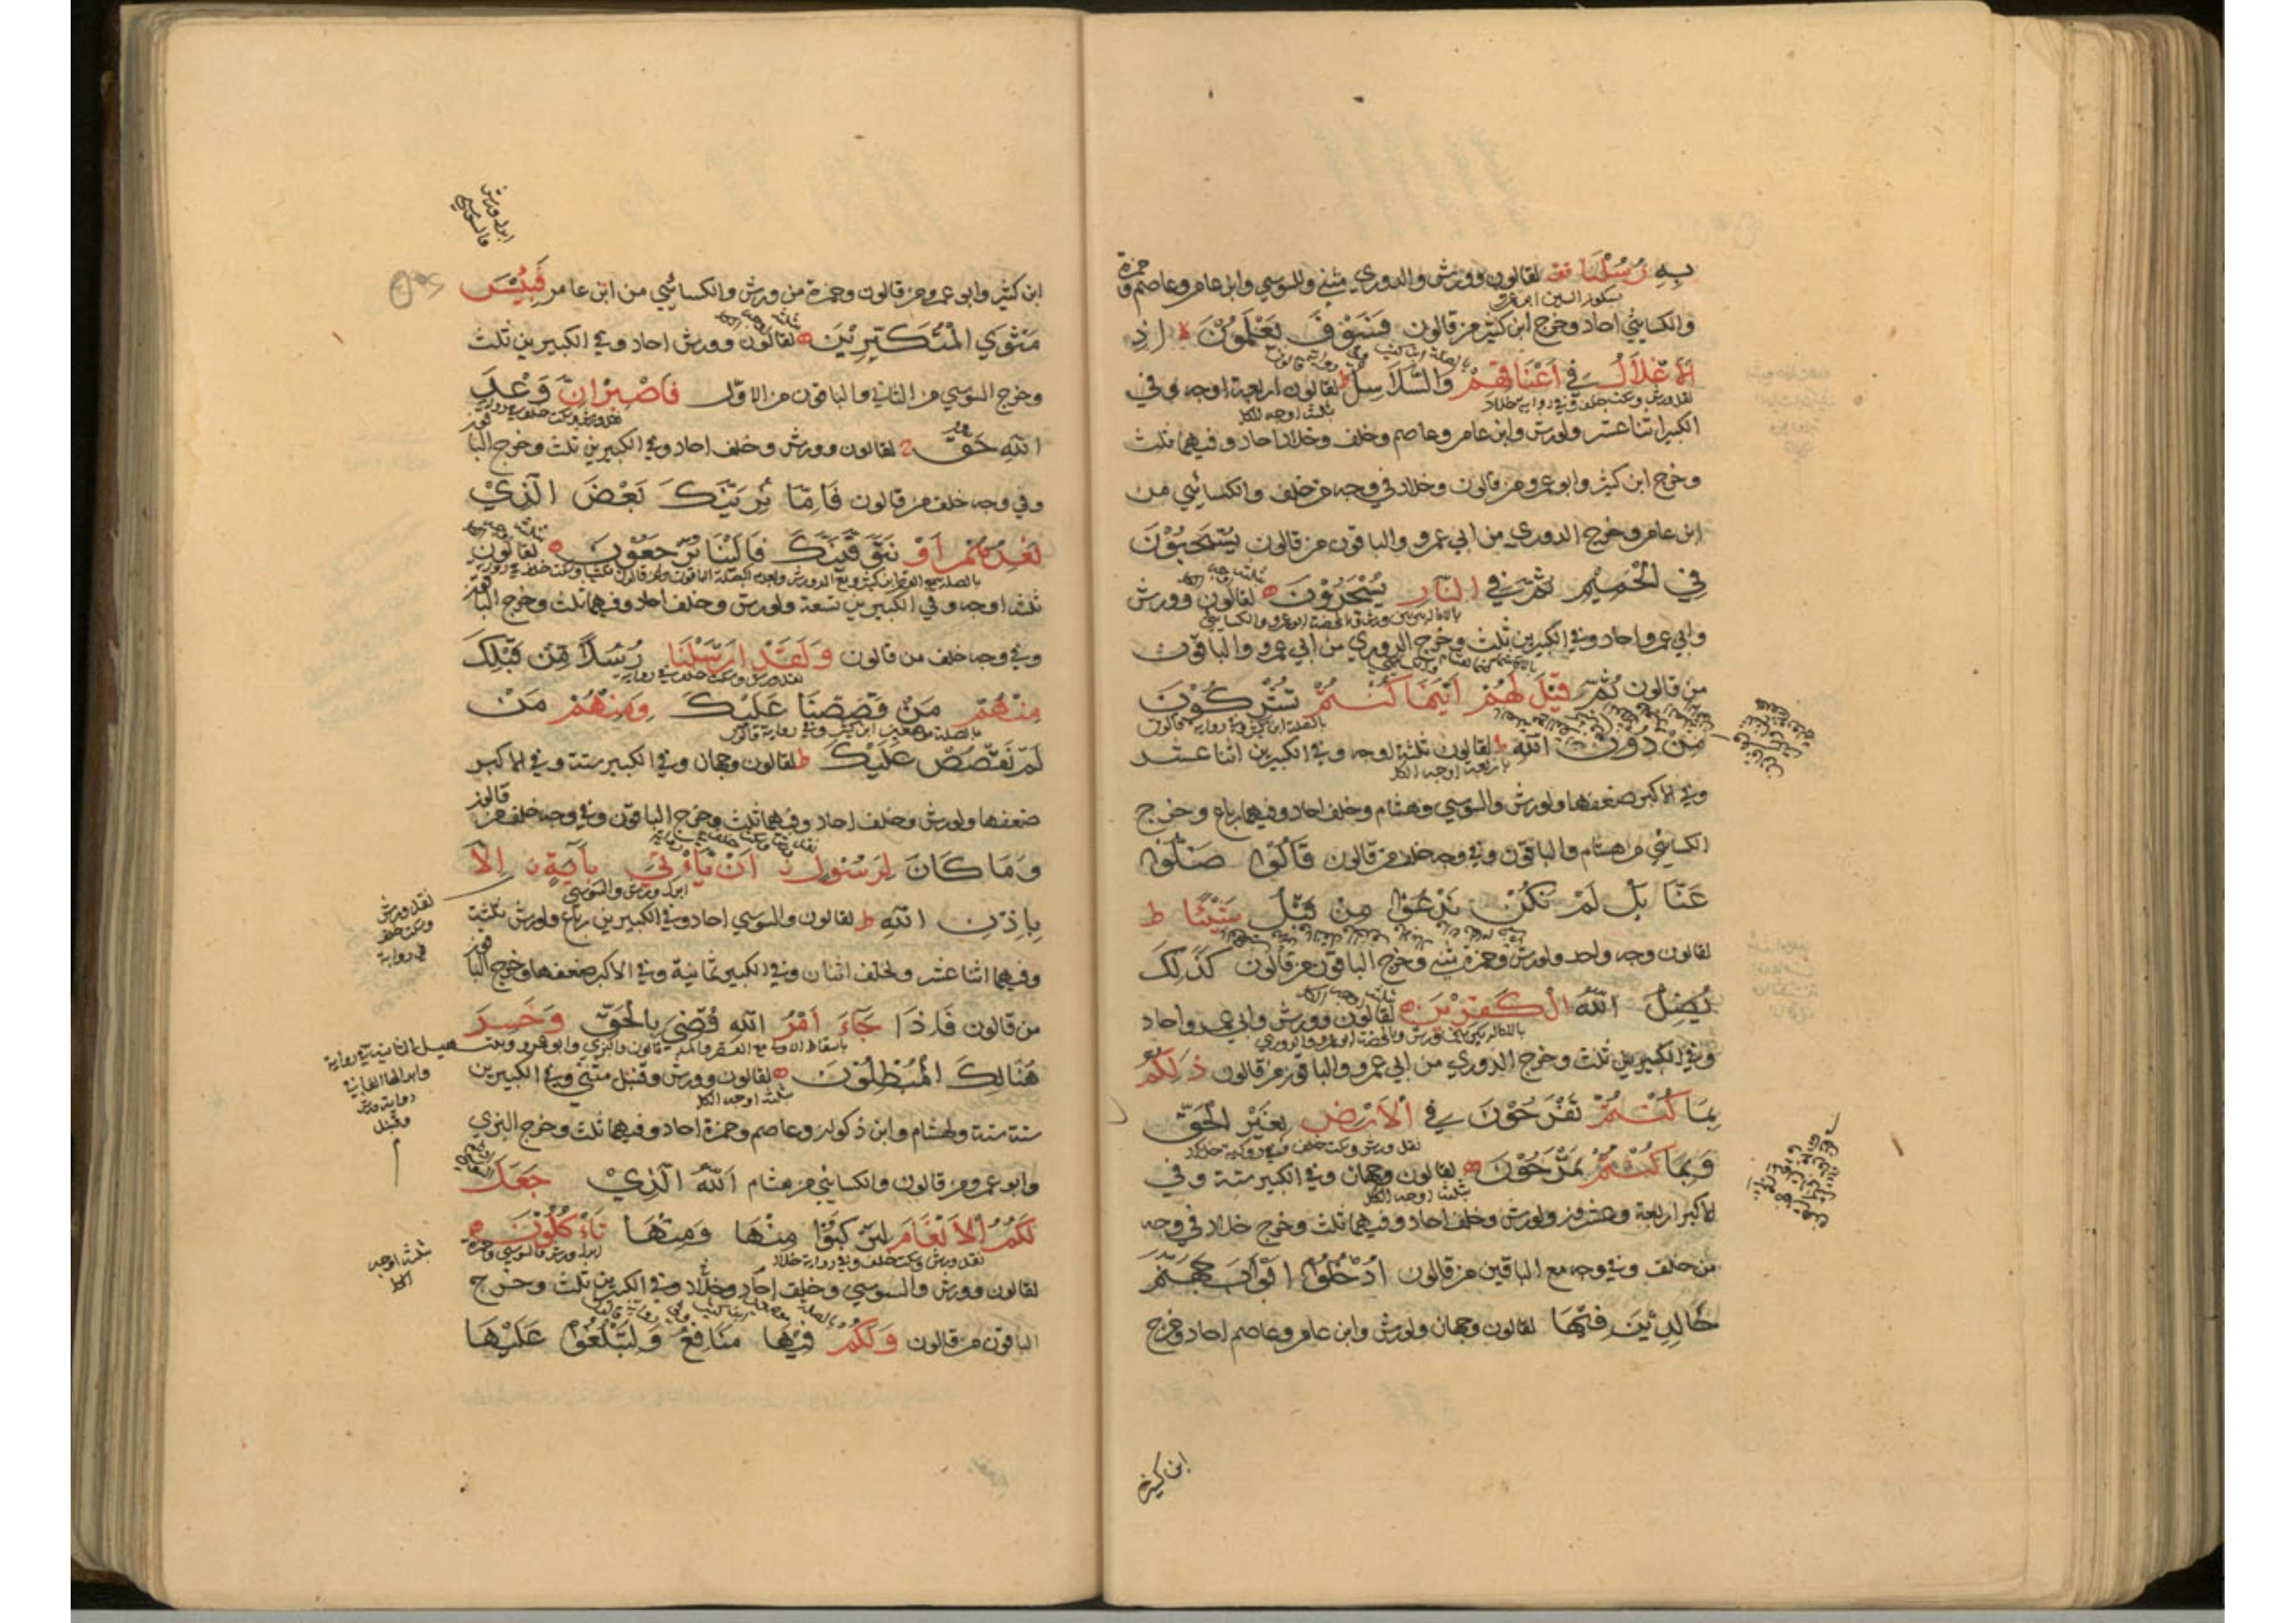 بِهِ رُسُلَنَا قف لقالون وورش والدوري مثنى وللسوسي وابن عامر وعاصم وحمزة
والكسائي احاد وخرج ابن كثير من قالون فَسَوْفَ يَعْلَمُوْنَ لا اِذِ
الْاَغْلَالُ فِي اَعْنَاقِهِمْ وَالسَّلَاسِلُ ط لقالون اربعة اوجه وفي
ثلثة اوجه للكل
الكبير اثنا عشر ولورش وابن عامر وعاصم وخلف وخلاد احاد وفيهما ثلث
وخرج ابن كثير وابو عمرو من قالون وخلاد في وجه من خلف والكسائي من
ابن عامر وخرج الدوري من ابي عمرو والباقون من قالون يُسْحَبُوْنَ
فِي الْحَمِيْمِ ثُمَّ فِي النَّارِ يُسْجَرُوْنَ لقالون وورش
وابي عمرو احاد وفي الكبيرين ثلث وخرج الدوري من ابي عمرو والباقون
من قالون ثُمَّ قِيْلَ لَهُمْ اَيْنَمَا كُنْتُمْ تُشْرِكُوْنَ
مِنْ دُوْنِ اللّٰهِ ط لقالون ثلثة اوجه وفي الكبيرين اثنا عشر
باربعة اوجه الكل
وفي الاكبر ضعفها ولورش والسوسي وهشام وخلف احاد وفيهما رباع وخرج
الكسائي من هشام والباقون وفي وجه خلاد من قالون قَالُوْا ضَلُّوْا
عَنَّا بَلْ لَمْ نَكُنْ نَدْعُوْا مِنْ قَبْلُ شَيْئًا ط
لقالون وجه واحد ولورش وحمزة مثنى وخرج الباقون من قالون كَذٰلِكَ
يُضِلُّ اللّٰهُ الْكٰفِرِيْنَ لقالون وورش وابي عمرو احاد
وفي الكبيرين ثلث وخرج الدوري من ابي عمرو والباقون من قالون ذٰلِكُمْ
بِمَا كُنْتُمْ تَفْرَحُوْنَ فِي الْاَرْضِ بِغَيْرِ الْحَقِّ
وَبِمَا كُنْتُمْ تَمْرَحُوْنَ لقالون وجهان وفي الكبير ستة وفي
ثلثة اوجه الكل
الاكبر اربعة وعشرون ولورش وخلف احاد وفيهما ثلث وخرج خلاد في وجه
من خلف وفي وجه مع الباقين من قالون اُدْخُلُوْا اَبْوَابَ جَهَنَّمَ
خَالِدِيْنَ فِيْهَا لقالون وجهان ولورش وابن عامر وعاصم احاد وخرج
ابن كثير
ابن كثير وابو عمرو من قالون وحمزة من ورش والكسائي من ابن عامر فَبِئْسَ
مَثْوَى الْمُتَكَبِّرِيْنَ لقالون وورش احاد وفي الكبيرين ثلث
وخرج السوسي من الثاني والباقون من الاول فَاصْبِرْ اِنَّ وَعْدَ
اللّٰهِ حَقٌّ لقالون وورش وخلف احاد وفي الكبيرين ثلث وخرج الباقون
وفي وجه خلف من قالون فَاِمَّا نُرِيَنَّكَ بَعْضَ الَّذِيْ
نَعِدُهُمْ اَوْ نَتَوَفَّيَنَّكَ فَاِلَيْنَا يُرْجَعُوْنَ لقالون
ثلثة اوجه وفي الكبيرين تسعة ولورش وخلف احاد وفيهما ثلث وخرج الباقون
وفي وجه خلف من قالون وَلَقَدْ اَرْسَلْنَا رُسُلًا مِنْ قَبْلِكَ
مِنْهُمْ مَنْ قَصَصْنَا عَلَيْكَ وَمِنْهُمْ مَنْ
لَمْ نَقْصُصْ عَلَيْكَ ط لقالون وجهان وفي الكبير ستة وفي الاكبر
ضعفها ولورش وخلف احاد وفيهما ثلث وخرج الباقون وفي وجه خلف من قالون
وَمَا كَانَ لِرَسُوْلٍ اَنْ يَأْتِيَ بِاٰيَةٍ اِلَّا
ابدل ورش والسوسي
بِاِذْنِ اللّٰهِ ط لقالون والسوسي احاد وفي الكبيرين رباع ولورش ثلثة
وفيهما اثنا عشر ولخلف اثنان وفي الكبير ثمانية وفي الاكبر ضعفها وخرج الباقون
من قالون فَاِذَا جَآءَ اَمْرُ اللّٰهِ قُضِيَ بِالْحَقِّ وَخَسِرَ
هُنَالِكَ الْمُبْطِلُوْنَ لقالون وورش وقنبل مثنى وفي الكبيرين
ثلثة اوجه الكل
ستة ستة ولهشام وابن ذكوان وعاصم وحمزة احاد وفيهما ثلث وخرج البزي
وابو عمرو من قالون والكسائي من هشام اَللّٰهُ الَّذِيْ جَعَلَ
لَكُمُ الْاَنْعَامَ لِتَرْكَبُوْا مِنْهَا وَمِنْهَا تَأْكُلُوْنَ
لقالون وورش والسوسي وخلف احاد وخلاد وفي الكبيرين ثلث وخرج
الباقون من قالون وَلَكُمْ فِيْهَا مَنَافِعُ وَلِتَبْلُغُوْا عَلَيْهَا
ابدل ورش
والسوسي
نقل ورش
وسكت خلف
في رواية
ثلثة اوجه
الكل